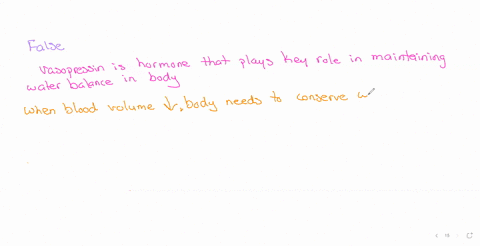 False
vasopressin is hormone that plays key role in maintaining
water balance in body
when blood volume ↓, body needs to conserve w